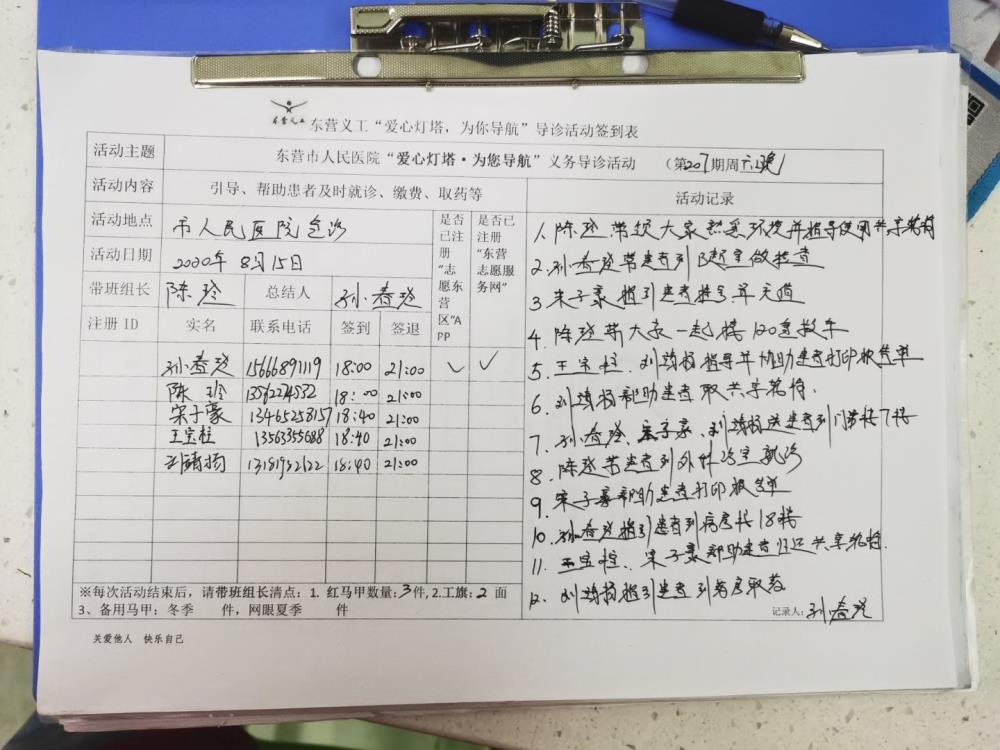 东营义工
东营义工“爱心灯塔，为你导航”导诊活动签到表
活动主题
东营市人民医院“爱心灯塔·为您导航”义务导诊活动 （第207期周六晚）
活动内容 引导、帮助患者及时就诊、缴费、取药等
活动地点 市人民医院急诊
活动日期 2020年8月15日
带班组长 陈玲 总结人 孙春玲
是否已注册“志愿东营区”APP
是否已注册“东营志愿服务网”
注册ID 实名 联系电话 签到 签退
孙春玲 15666891119 18:00 21:00 ✓ ✓
陈玲 18:00 21:00
宋子豪 13465258157 18:40 21:00
王宝柱 13563355688 18:40 21:00
刘靖扬 13181952122 18:40 21:00
※每次活动结束后，请带班组长清点：1. 红马甲数量：3件，2.工旗：2 面
3、备用马甲：冬季 件，网眼夏季 件
活动记录
1、陈玲带领大家熟悉环境并指导使用共享轮椅
2、孙春玲带患者到B超室做检查
3 宋子豪指引患者挂号
4、陈玲带大家一起推120急救车
5、王宝柱、刘靖扬指导并协助患者打印报告单
6、刘靖扬帮助患者取共享轮椅.
7、孙春玲、宋子豪、刘靖扬送患者到门诊楼7楼
8、陈玲带患者到外科诊室就诊
9、宋子豪帮助患者打印报告单
10、孙春玲指引患者到病房楼18楼
11、王宝柱、宋子豪帮助患者归还共享轮椅.
12、刘靖扬指引患者到药房取药
记录人：孙春玲
关爱他人 快乐自己